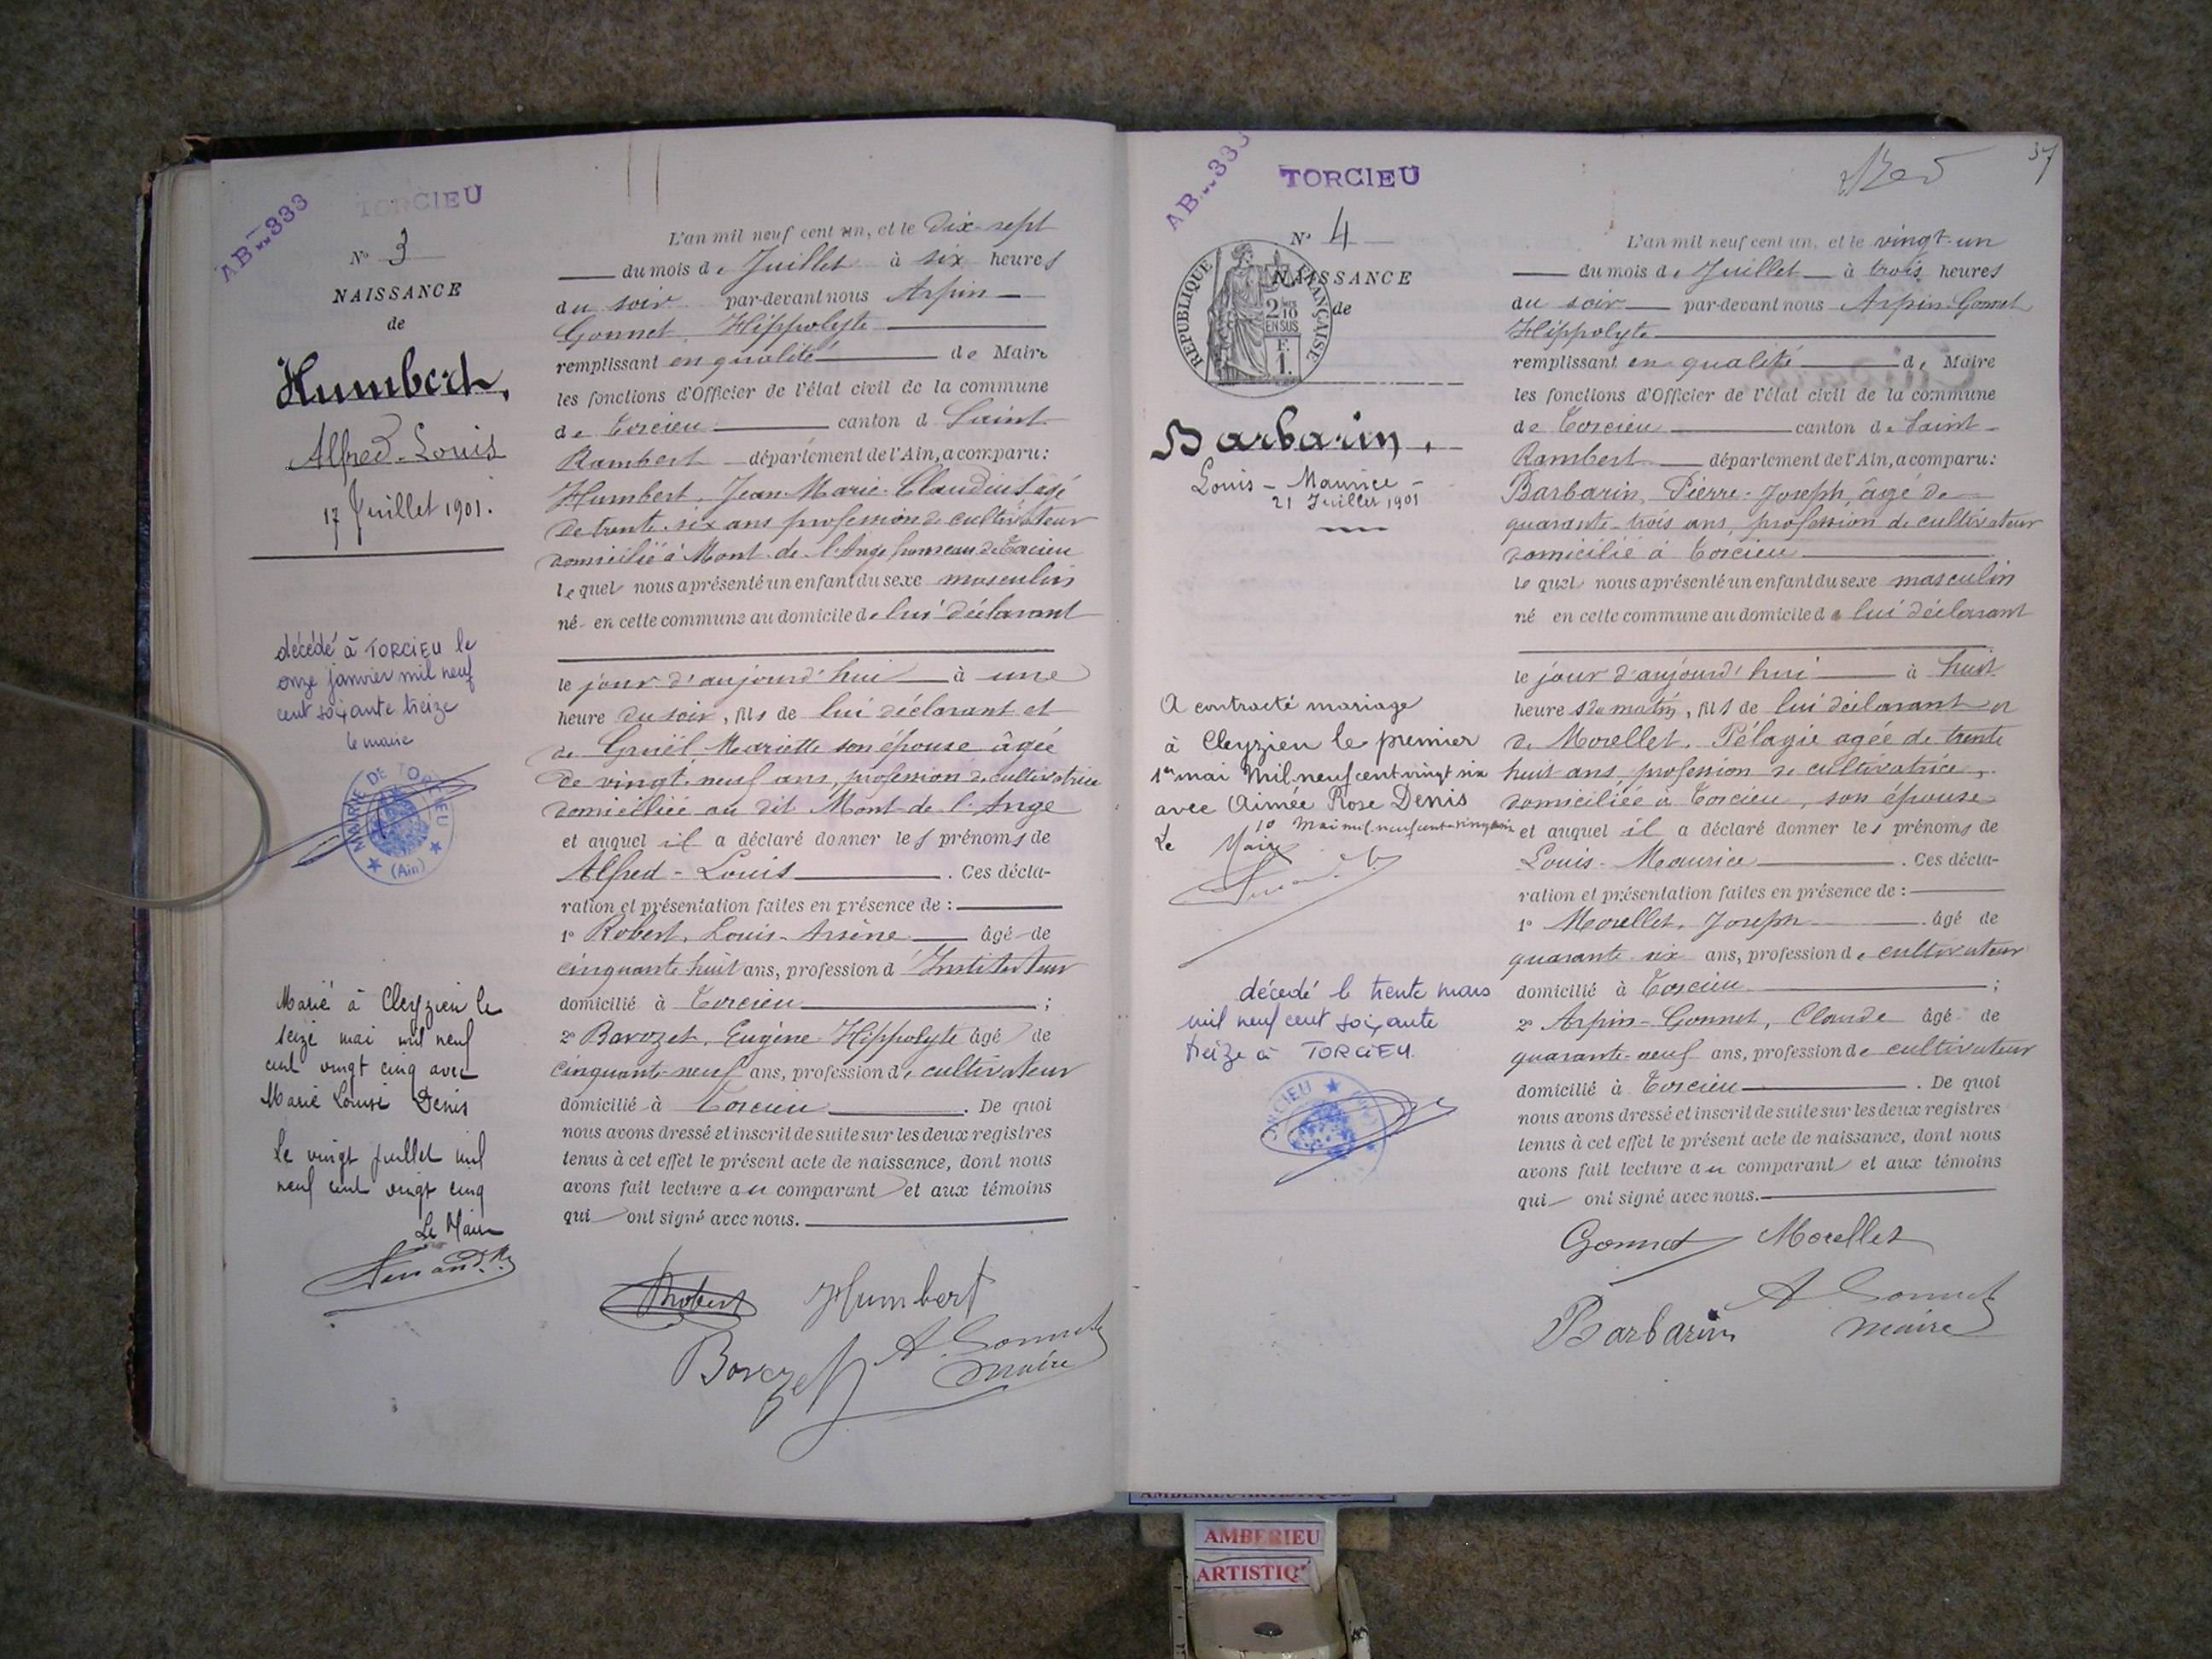 AB..333
TORCIEU
N° 3
NAISSANCE
de
Humbert,
Alfred-Louis
17 Juillet 1901.
décédé à TORCIEU le
onze janvier mil neuf
cent soixante treize
le maire
MAIRIE DE TORCIEU
(Ain)
Marié à Cleyzieu le
seize mai mil neuf
cent vingt cinq avec
Marie Louise Denis
Le vingt juillet mil
neuf cent vingt cinq
Le Maire
L'an mil neuf cent un, et le dix-sept
du mois de Juillet à six heures
du soir par-devant nous Arpin
Gonnet, Hippolyte
remplissant en qualité de Maire
les fonctions d'Officier de l'état civil de la commune
de Torcieu canton d Saint
Rambert département de l'Ain, a comparu:
Humbert, Jean-Marie-Claudius âgé
de trente-six ans profession de cultivateur
domicilié à Mont-de-l'Ange hameau de Torcieu
lequel nous a présenté un enfant du sexe masculin
né en cette commune au domicile de lui déclarant
le jour d'aujourd'hui à une
heure du soir, fils de lui déclarant et
de Gruël, Mariette son épouse âgée
de vingt-neuf ans, profession de cultivatrice
domiciliée au dit Mont-de-l'Ange
et auquel il a déclaré donner les prénoms de
Alfred-Louis. Ces décla-
ration et présentation faites en présence de :
1° Robert, Louis-Arsène âgé de
cinquante-huit ans, profession d'Instituteur
domicilié à Torcieu ;
2° Bavozet, Eugène-Hippolyte âgé de
cinquante-neuf ans, profession de cultivateur
domicilié à Torcieu. De quoi
nous avons dressé et inscrit de suite sur les deux registres
tenus à cet effet le présent acte de naissance, dont nous
avons fait lecture au comparant et aux témoins
qui ont signé avec nous.
Robert Humbert
Bavozet A. Gonnet
maire
AB..333
TORCIEU
37
N° 4
NAISSANCE
de
REPUBLIQUE FRANÇAISE
2/10
EN SUS
F.
1.
Barbarin,
Louis-Maurice-
21 Juillet 1901
A contracté mariage
à Cleyzieu le premier
1er mai mil neuf cent vingt six
avec Aimée Rose Denis
Le 10 Mai mil neuf cent vingt six
Maire
décédé le trente mars
mil neuf cent soixante
treize à TORCIEU.
L'an mil neuf cent un, et le vingt-un
du mois de Juillet à trois heures
du soir par-devant nous Arpin-Gonnet
Hippolyte
remplissant en qualité de Maire
les fonctions d'Officier de l'état civil de la commune
de Torcieu canton de Saint-
Rambert département de l'Ain, a comparu:
Barbarin, Pierre-Joseph, âgé de
quarante-trois ans, profession de cultivateur
domicilié à Torcieu
lequel nous a présenté un enfant du sexe masculin
né en cette commune au domicile de lui déclarant
le jour d'aujourd'hui à huit
heures du matin, fils de lui déclarant et
de Morellet, Pélagie agée de trente
huit ans, profession de cultivatrice,
domiciliée à Torcieu, son épouse
et auquel il a déclaré donner les prénoms de
Louis-Maurice. Ces décla-
ration et présentation faites en présence de :
1° Morellet, Joseph âgé de
quarante-six ans, profession de cultivateur
domicilié à Torcieu ;
2° Arpin-Gonnet, Claude âgé de
quarante-neuf ans, profession de cultivateur
domicilié à Torcieu. De quoi
nous avons dressé et inscrit de suite sur les deux registres
tenus à cet effet le présent acte de naissance, dont nous
avons fait lecture au comparant et aux témoins
qui ont signé avec nous.
Gonnet Morellet
Barbarin A. Gonnet
maire
AMBERIEU
ARTISTIQ